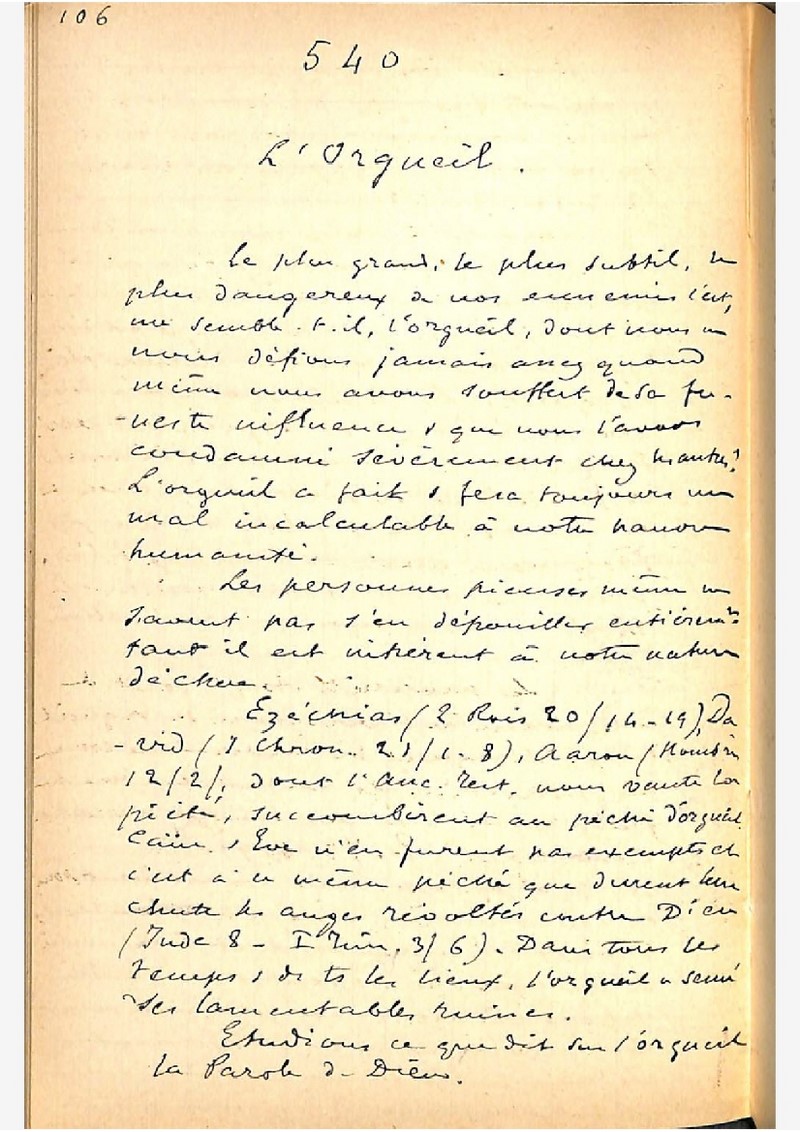 106
540
L'Orgueil.
Le plus grand, le plus subtil, le
plus dangereux de nos ennemis c'est,
me semble-t-il, l'orgueil, dont nous ne
nous défions jamais assez quand
même nous avons souffert de sa fu-
neste influence & que nous l'avons
condamné sévèrement chez les autres!
L'orgueil a fait & fera toujours un
mal incalculable à notre pauvre
humanité.
Les personnes pieuses même ne
savent pas s'en dépouiller entièremt
tant il est inhérent à notre nature
déchue.
Ezéchias (2 Rois 20/14-19), Da
-vid (I Chron. 21/1-8), Aaron (Nombres
12/2/, dont l'Anc. Test. nous vante la
piété, succombèrent au péché d'orgueil.
Caïn & Eve n'en furent pas exempts et
c'est à ce même péché que durent leur
chute les anges révoltés contre Dieu
(Jude 8 - I Tim. 3/6). Dans tous les
temps & ds ts les lieux, l'orgueil a semé
ses lamentables ruines.
Etudions ce que dit sur l'orgueil
la Parole de Dieu.